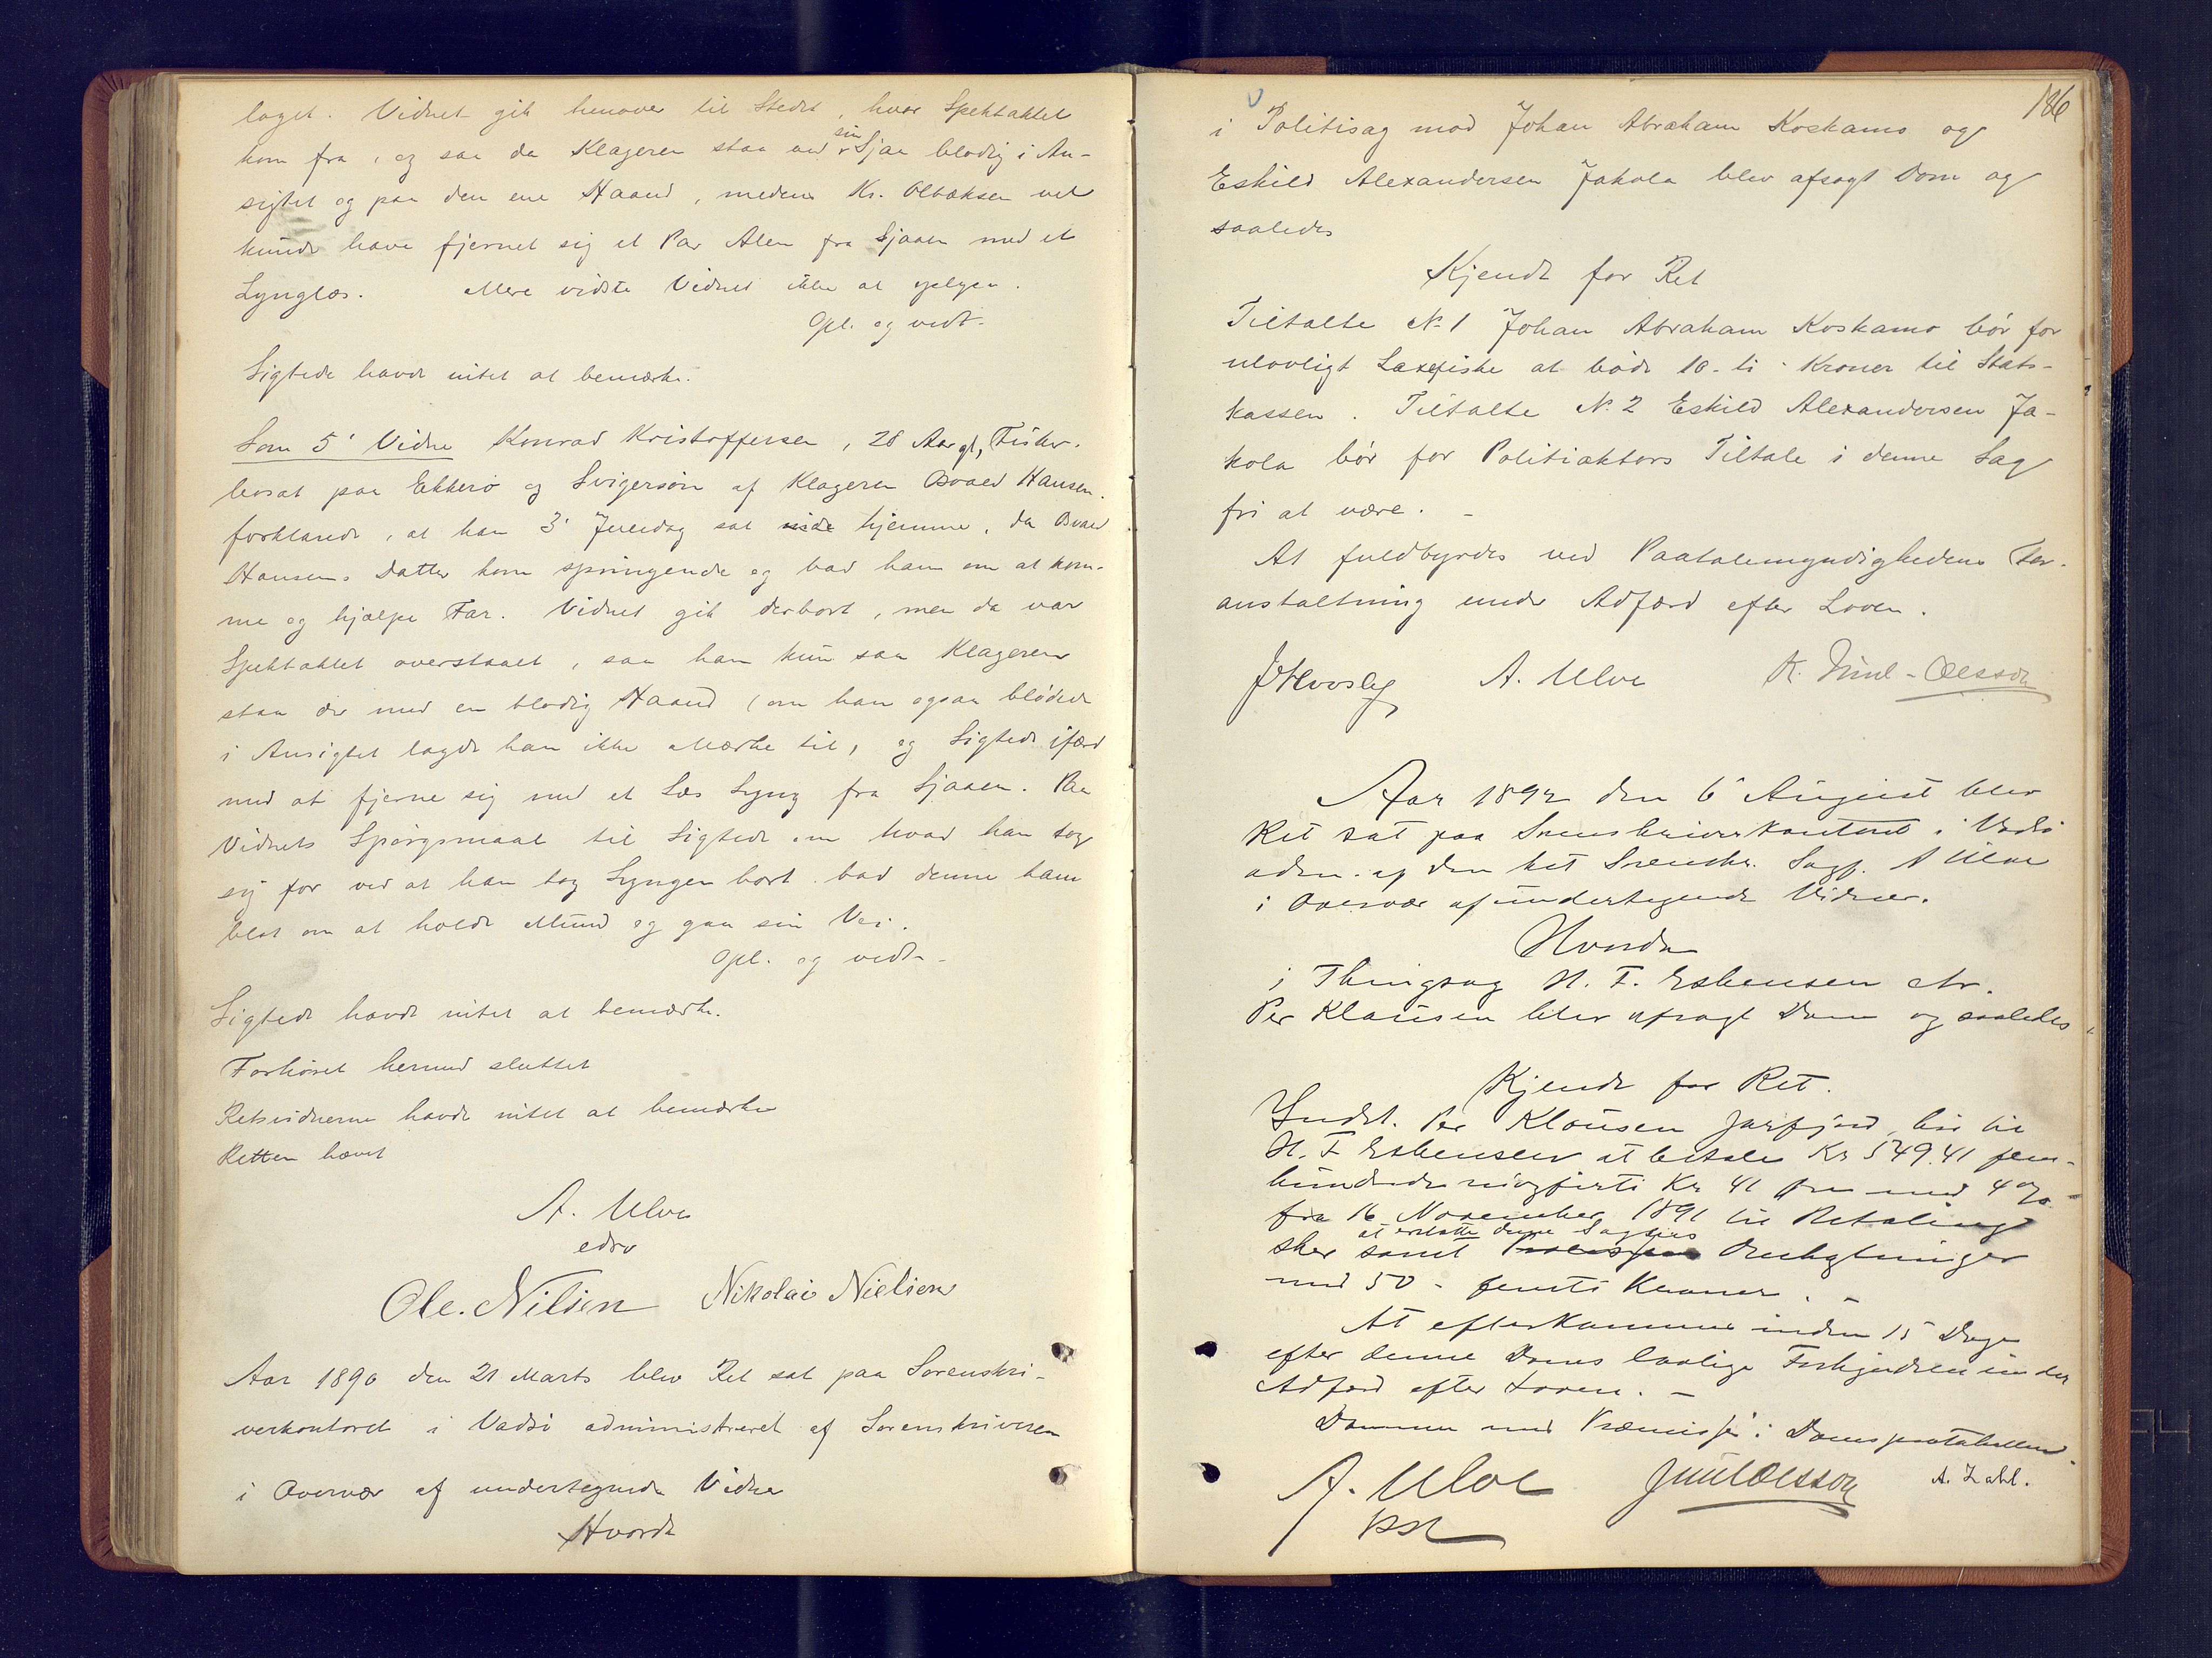 laget. Vidnet gik henover til Stedet, hvor Spektaklet
kom fra, og saa da Klageren staa ved sin Sjaa blodig i An-
sigtet og paa den ene Haand, medens Kr. Olbaksen vel
kunde have fjernet sig et Par Alen fra Sjaaen med et
Lynglæs. Mere vidste Vidnet ikke at oplyse.
Opl. og vedt.
Sigtede havde intet at bemærke.
Som 5' Vidne Konrad Kristoffersen, 28 Aar gl, Fisker.
bosat paa Ekkerö og Svigersön af Klageren Hansen.
forklarede, at han 3' Juledag sat hjemme, da
Hansens Datter kom springende og bad ham om at kom-
me og hjælpe Far. Vidnet gik derbort, men da var
Spektaklet overstaaet, saa han kun saa Klageren
staa der med en blodig Haand (om han ogsaa blödede
i Ansigtet lagde han ikke Mærke til, og Sigtede ifærd
med at fjerne sig med et Læs Lyng fra Sjaaen. Paa
Vidnets Spörgsmaal til Sigtede om hvad han tog
sig for ved at han tog Lyngen bort bad denne ham
blot om at holde Mund og gaa sin Vei.
Opl. og vedt.
Sigtede havde intet at bemærke.
Forhöret hermed sluttet
Retsvidnerne havde intet at bemærke
Retten hævet
A. Ulve
edsv
Ole. Nilsen Nikolai Nielsen
Aar 1890 den 21 Marts blev Ret sat paa Sorenskri-
verkontoret i Vadsö administreret af Sorenskriveren
i Overvær af undertegnede Vidner
Hvorda
186
i Politisag mod Johan Abraham Koskamo og
Eskild Alexandersen Jakola blev afsagt Dom og
saaledes
Kjendt for Ret
Tiltalte No 1 Johan Abraham Koskamo bör for
ulovligt Laxefiske at böde 10 - ti - Kroner til Stats-
kassen. Tiltalte No 2 Eskild Alexandersen Ja-
kola bör for Politiaktors Tiltale i denne Sag
fri at være. -
At fuldbyrdes ved Paatalemyndighedens For-
anstaltning under Adfærd efter Loven.
A. Ulve K. Juul-Olsson
Aar 1892 den 6' August blev
Ret sat paa Sorenskriverkontoret i Vadsö
adm. af den kst Sorenskr. Sagf. A Ulve
i Overvær af undertegnede Vidner.
Hvorda
i Thingsag H. F. Esbensen ctr.
Per Klausen blev afsagt Dom og saaledes
Kjendt for Ret.
Indst. Per Klausen Jarfjord, bör til
H. F. Esbensen at betale Kr 549.41 fem-
hundrede niogfirti Kr 41 öre med 4 %
fra 16 November 1891 til Betaling
at erstatte denne Sagens
sker samt Omkostninger
med 50 - femti Kroner. -
At efterkommes inden 15 Dage
efter denne Doms lovlige Forkyndelse under
Adfærd efter Loven. -
Dommen med Præmisser i Domsprotokollen
A. Ulve Juul Olsson A. Zahl.
kst